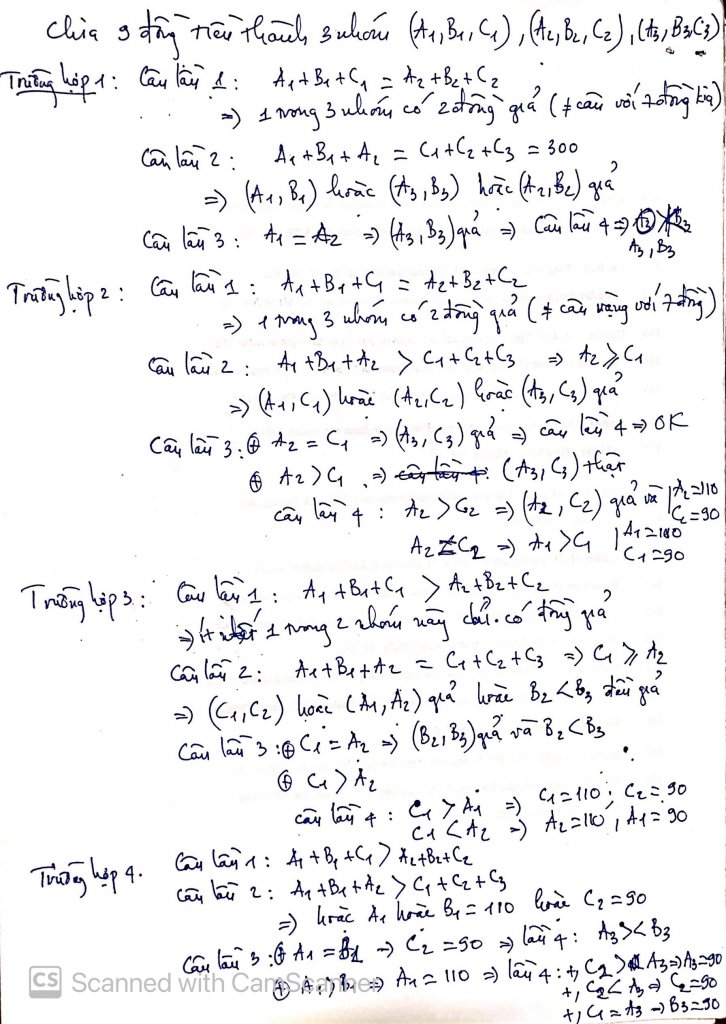 Chia 9 đồng tiền thành 3 nhóm (A1, B1, C1), (A2, B2, C2), (A3, B3 C3)
Trường hợp 1: Cân lần 1: A1+B1+C1 = A2+B2+C2
=> 1 trong 3 nhóm có 2 đồng giả (≠ cân với 7 đồng kia)
Cân lần 2: A1+B1+A2 = C1+C2+C3 = 300
=> (A1, B1) hoặc (A3, B3) hoặc (A2, B2) giả
Cân lần 3: A1 = A2 => (A3, B3) giả => Cân lần 4 =>
A3, B3
Trường hợp 2: Cân lần 1: A1+B1+C1 = A2+B2+C2
=> 1 trong 3 nhóm có 2 đồng giả (≠ cân nặng với 7 đồng)
Cân lần 2: A1+B1+A2 > C1+C2+C3 => A2 ≥ C1
=> (A1, C1) hoặc (A2, C2) hoặc (A3, C3) giả
Cân lần 3: ⊕ A2 = C1 => (A3, C3) giả => cân lần 4 => OK
⊕ A2 > C1 => (A3, C3) thật
cân lần 4: A2 > C2 => (A2, C2) giả và | A2=110
C2=90
A2 = C2 => A1 > C1 | A1=110
C1=90
Trường hợp 3: Cân lần 1: A1+B1+C1 > A2+B2+C2
=> 1 trong 2 nhóm này có đồng giả
Cân lần 2: A1+B1+A2 = C1+C2+C3 => C1 ≥ A2
=> (C1, C2) hoặc (A1, A2) giả hoặc B2 < B3 đều giả
Cân lần 3: ⊕ C1 = A2 => (B2, B3) giả và B2 < B3
⊕ C1 > A2
cân lần 4: C1 > A1 => C1=110; C2=90
C1 < A2 => A2=110, A1=90
Trường hợp 4. Cân lần 1: A1+B1+C1 > A2+B2+C2
Cân lần 2: A1+B1+A2 > C1+C2+C3
=> hoặc A1 hoặc B1 = 110 hoặc C2=90
Cân lần 3: ⊕ A1 = B1 -> C2=90 => lần 4: A3 >< B3
⊕ A1 > B1 -> A1=110 => lần 4: +, C2 > A3 => A3=90
+, C2 < A3 => C2=90
+, C1 = A3 -> B3=90
CS Scanned with CamScanner